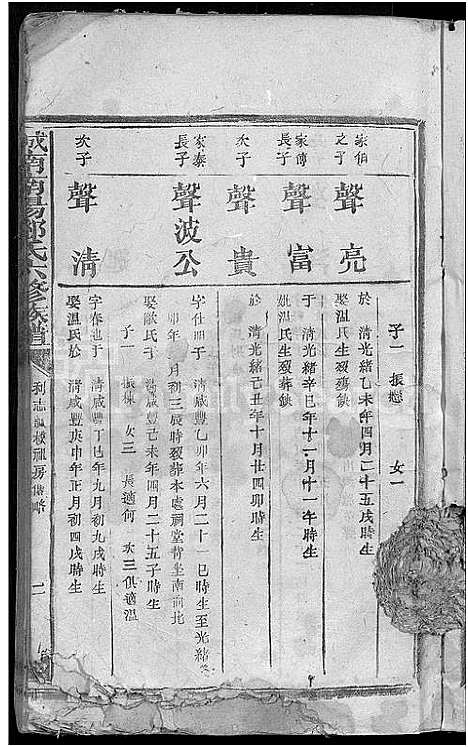 子一 振 女一
家伯之子 聲亮 於 清光緒乙未年四月二十五戌時生
娶溫氏生歿葬缺
家傳長子 聲富 于 清光緒辛巳年十一月十一午時生
姚溫氏生歿葬缺
次子 聲貴 於 清光緒己丑年十月廿四卯時生
家泰長子 聲波公 字仕 于 清咸豐乙卯年六月二十一巳時生至光緒
卯年 月初三辰時歿葬本處祠堂背坐南向北
娶歐氏于 清咸豐己未年四月二十五子時生
子一 振棟 女三 長適何 次三俱適溫
次子 聲清 字春 于 清咸豐丁巳年九月初九戌時生
娶溫氏於 清咸豐庚申年正月初四戌時生
城南南陽鄧氏六修族譜
利志 房 二